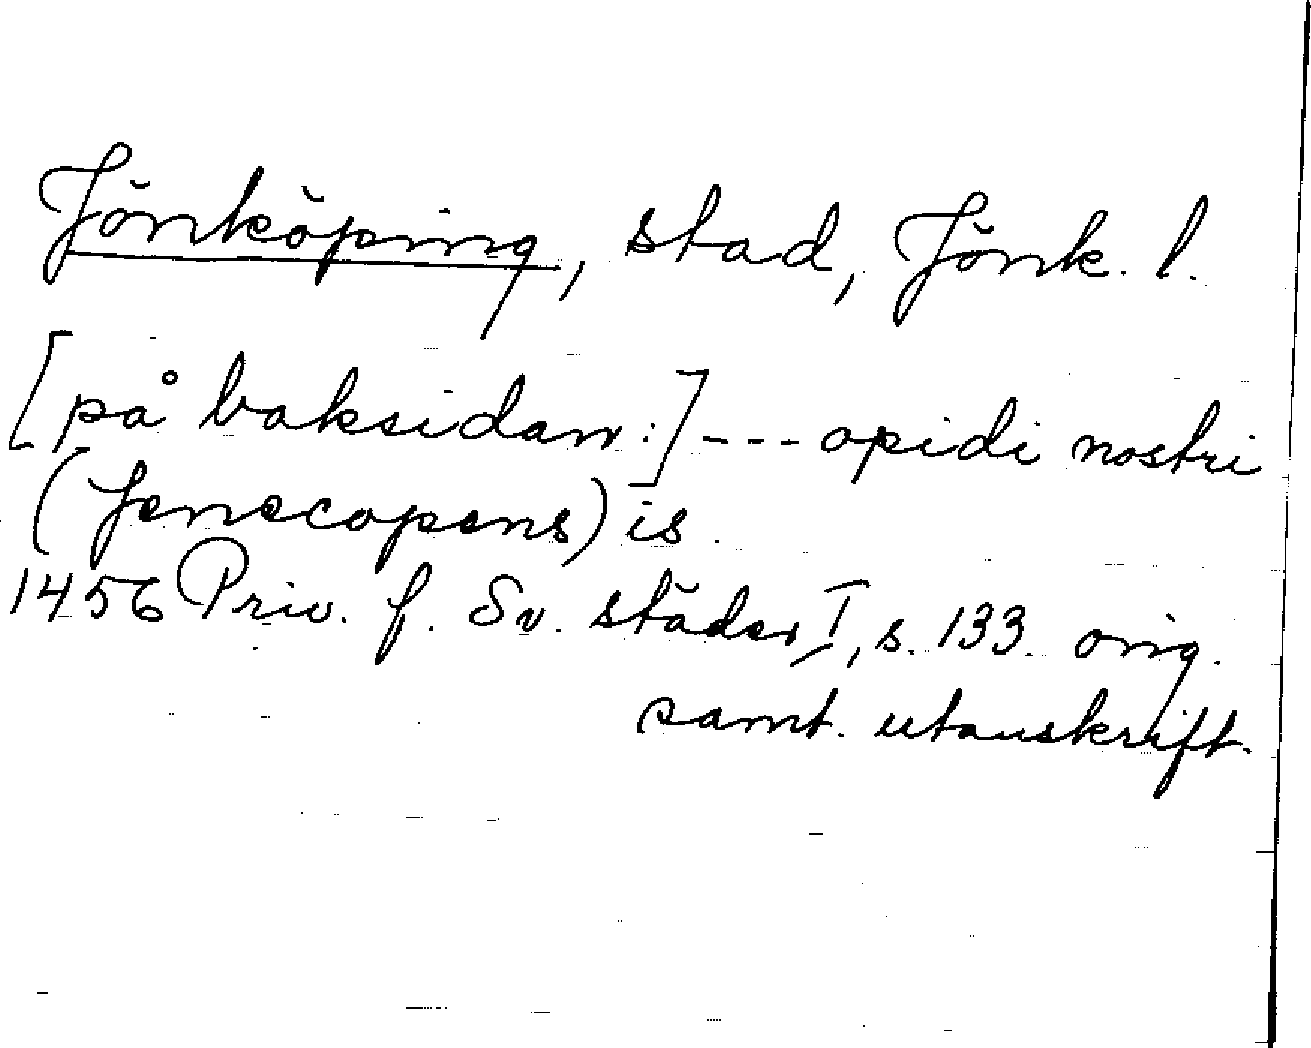 Jönköping, stad, Jönk. l.
[på baksidan:] --- opidi nostri
(Jenecopens) is.
1456 Priv. f. Sv. städer I, s. 133. orig.
samt. utanskrift.